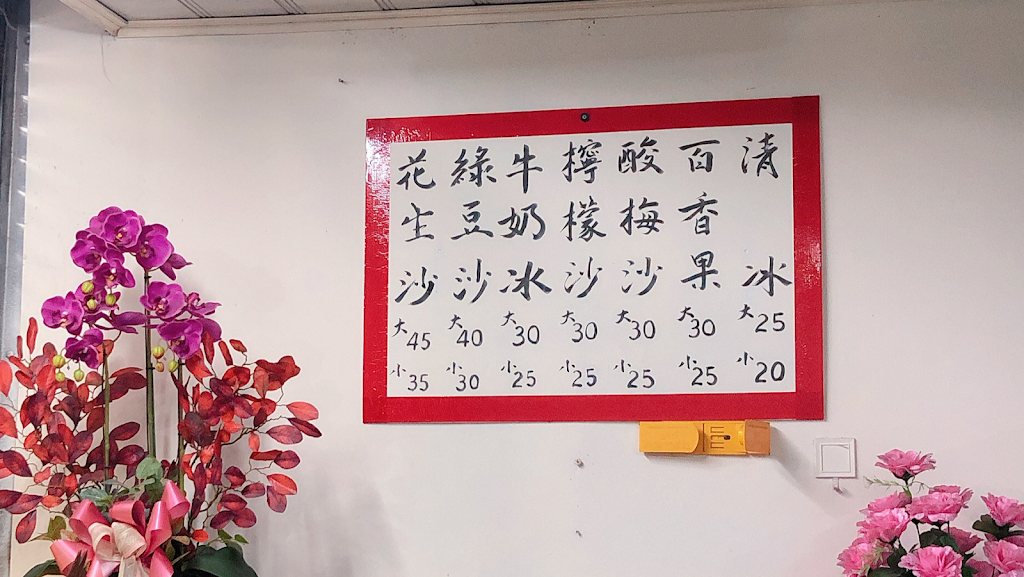 清冰 大25 小20
百香果 大30 小25
酸梅沙 大30 小25
檸檬沙 大30 小25
牛奶冰 大30 小25
綠豆沙 大40 小30
花生沙 大45 小35